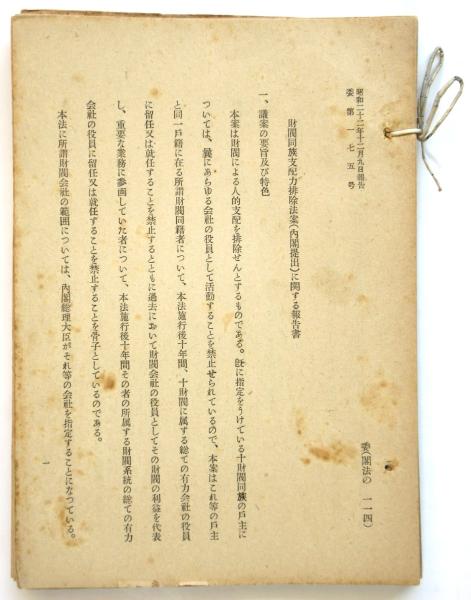 昭和二十二年十二月九日報告
委第一七五号
委(閣法の一一四)
財閥同族支配力排除法案(内閣提出)に関する報告書
一、議案の要旨及び特色
本案は財閥による人的支配を排除せんとするものである。既に指定をうけている十財閥同族の戸主に
ついては、曩にあらゆる会社の役員として活動することを禁止せられているので、本案はこれ等の戸主
と同一戸籍に在る所謂財閥同籍者について、本法施行後十年間、十財閥に属する総ての有力会社の役員
に留任又は就任することを禁止するとともに過去において財閥会社の役員としてその財閥の利益を代表
し、重要な業務に参画していた者について、本法施行後十年間その者の所属する財閥系統の総ての有力
会社の役員に留任又は就任することを禁止することを骨子としているのである。
本法に所謂財閥会社の範囲については、内閣総理大臣がそれ等の会社を指定することになつている。
一